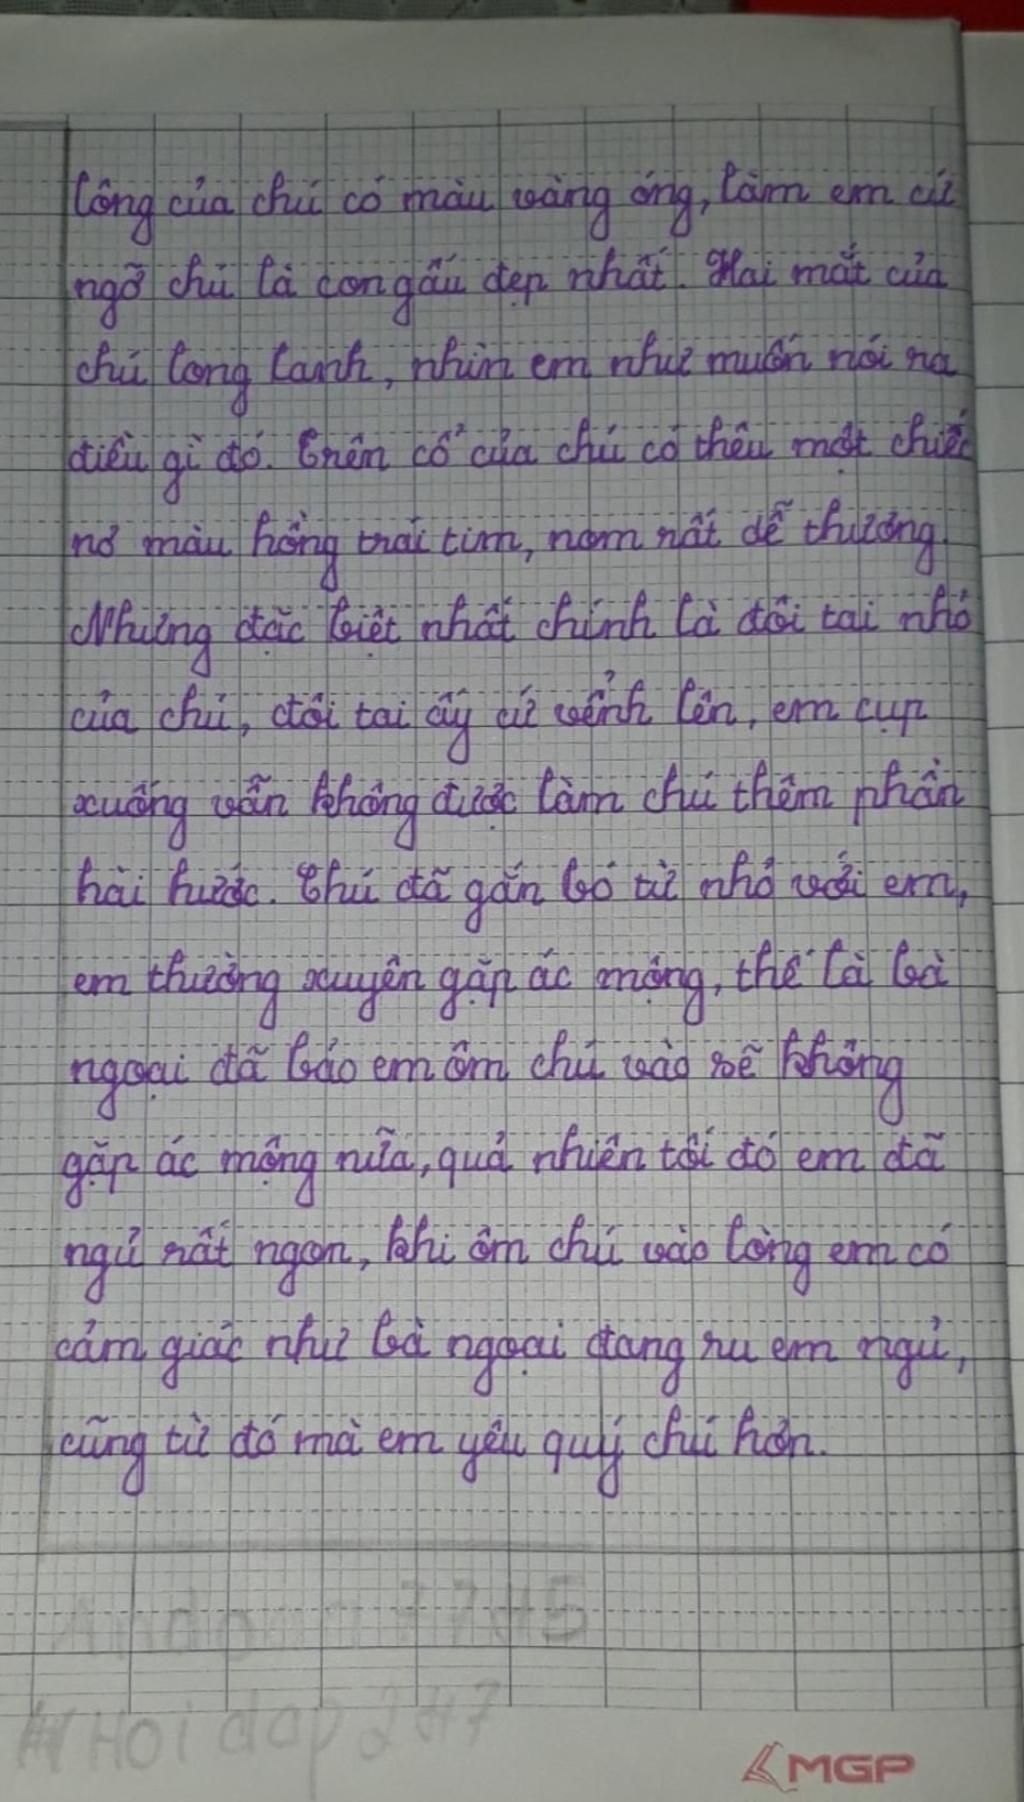 lông của chú có màu vàng óng, làm em cứ
ngỡ chú là con gấu đẹp nhất. Hai mắt của
chú long lanh, nhìn em như muốn nói ra
điều gì đó. Trên cổ của chú có thêu một chiếc
nơ màu hồng trái tim, nom rất dễ thương.
Nhưng đặc biệt nhất chính là đôi tai nhỏ
của chú, đôi tai ấy cứ vểnh lên, em cụp
xuống vẫn không được làm chú thêm phần
hài hước. Chú đã gắn bó từ nhỏ với em,
em thường xuyên gặp ác mộng, thế là bà
ngoại đã bảo em ôm chú vào sẽ không
gặp ác mộng nữa, quả nhiên tối đó em đã
ngủ rất ngon, khi ôm chú vào lòng em có
cảm giác như bà ngoại đang ru em ngủ,
cũng từ đó mà em yêu quý chú hơn.
Hoidap247
MGP